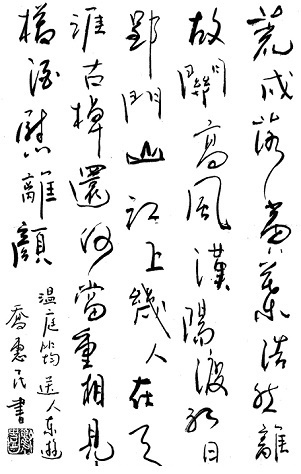 荒戍落黃葉浩然離
故關高風漢陽渡初日
郢門山江上幾人在天
涯古棹還何當重相見
樽酒慰離顏
温庭筠送人東遊
喬惠民書